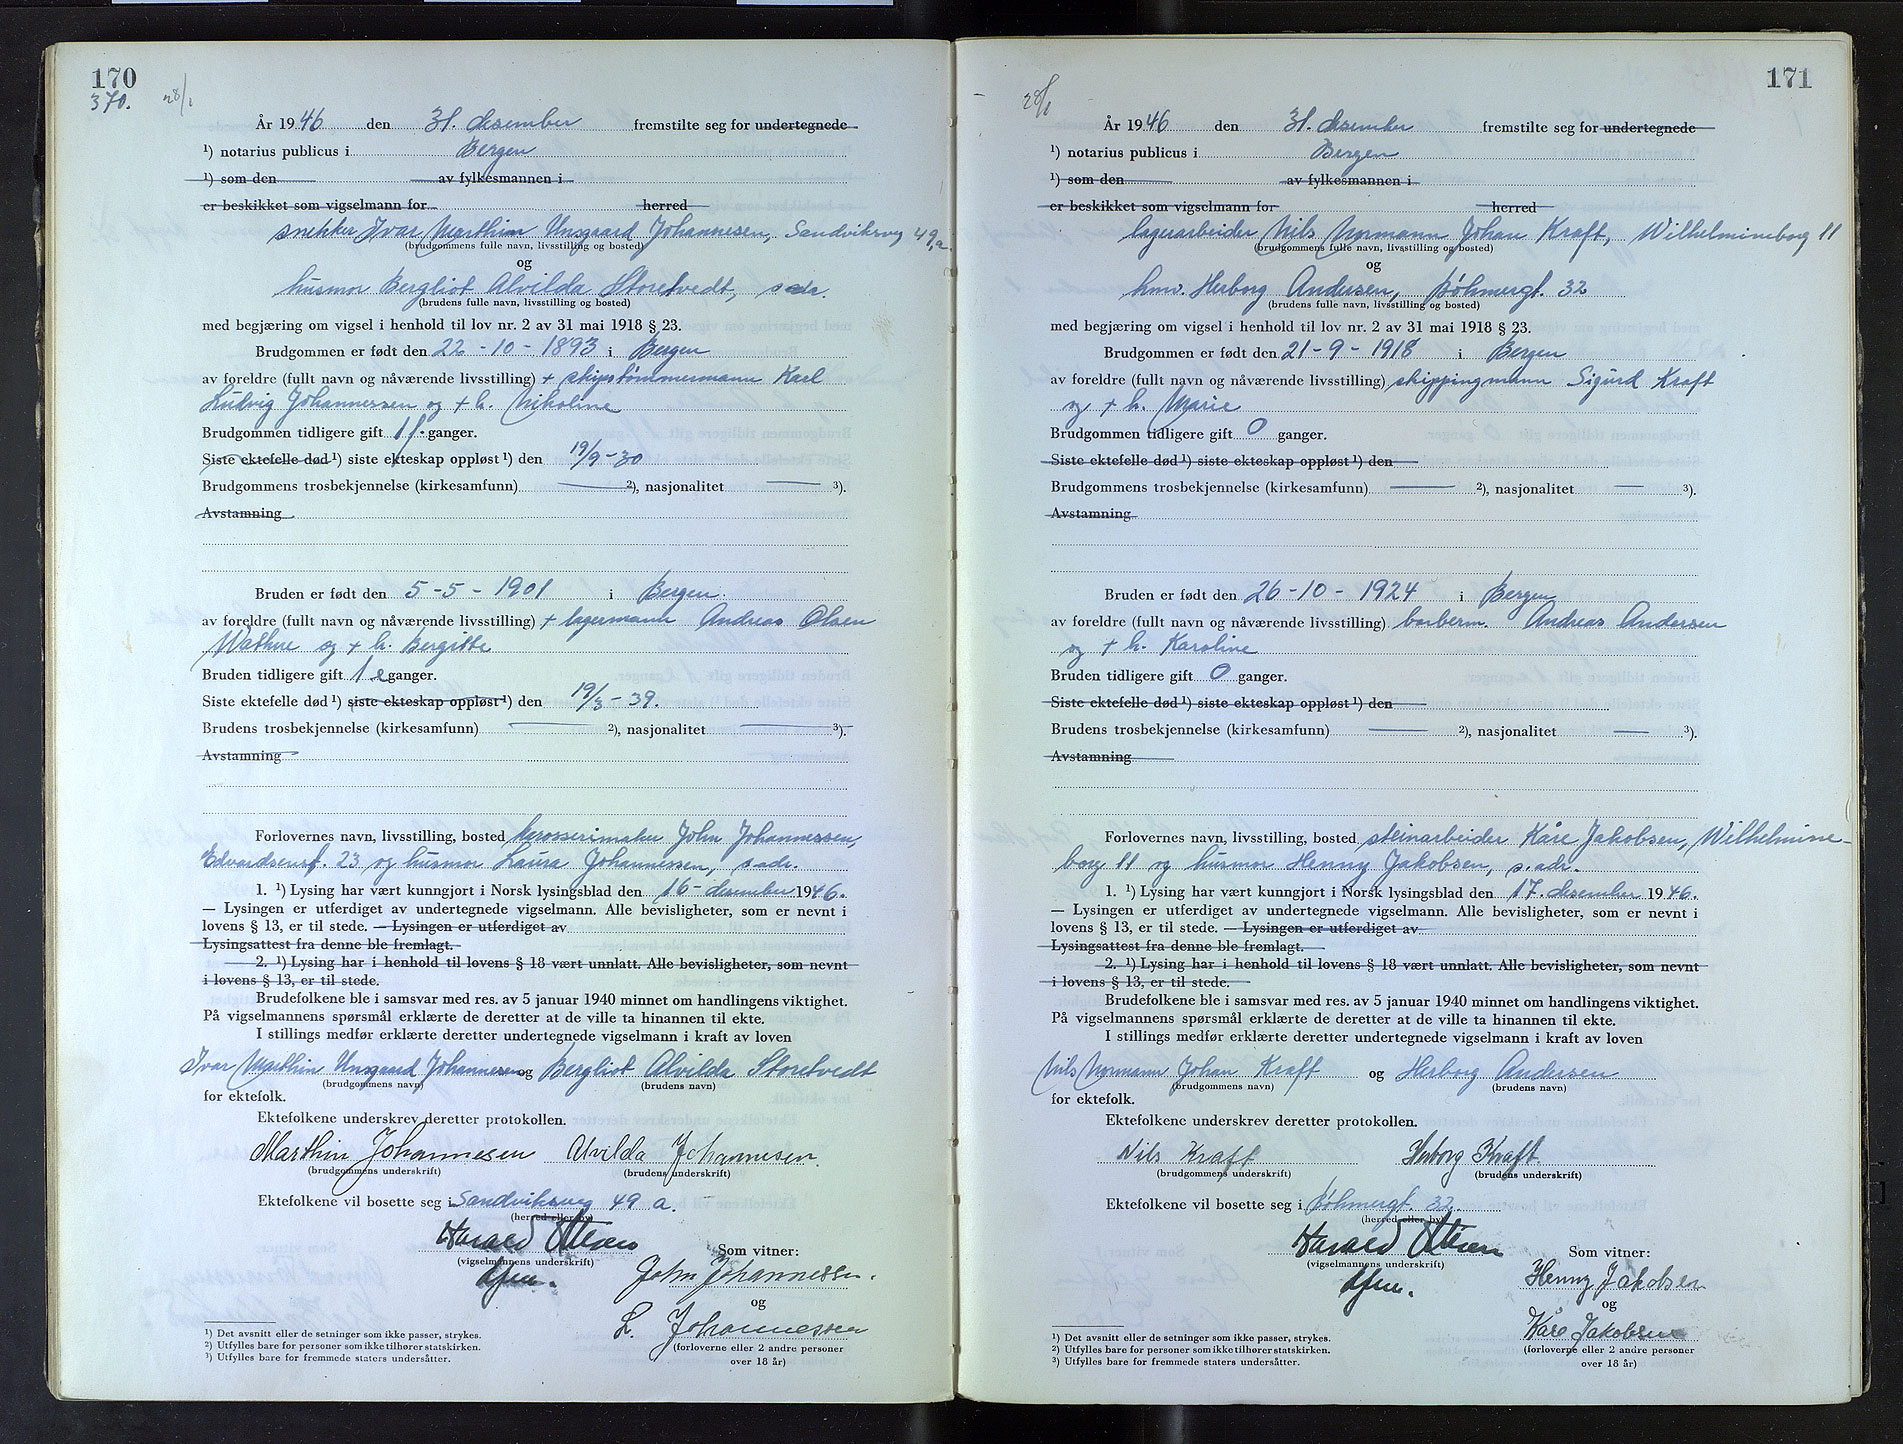 170
370.
28/1
År 1946 den 31. desember fremstilte seg for undertegnede
¹) notarius publicus i Bergen
¹) som den av fylkesmannen i
er beskikket som vigselmann for herred
snekker Ivar Marthin Unsgaard Johannesen, Sandviksveg 49,a
(brudgommens fulle navn, livsstilling og bosted)
og
husmor Bergliot Alvilda Storetvedt, s adr.
(brudens fulle navn, livsstilling og bosted)
med begjæring om vigsel i henhold til lov nr. 2 av 31 mai 1918 § 23.
Brudgommen er født den 22-10-1893 i Bergen
av foreldre (fullt navn og nåværende livsstilling) + skipstømmermann Karl
Ludvig Johannessen og + h. Nikoline
Brudgommen tidligere gift 1 f. ganger.
Siste ektefelle død ¹) siste ekteskap oppløst ¹) den 19/9-30
Brudgommens trosbekjennelse (kirkesamfunn) — ²), nasjonalitet — ³).
Avstamning
Bruden er født den 5-5-1901 i Bergen.
av foreldre (fullt navn og nåværende livsstilling) + lagermann Andreas Olsen
Wathne og + h. Bergitte
Bruden tidligere gift 1 e ganger.
Siste ektefelle død ¹) siste ekteskap oppløst ¹) den 19/3-39.
Brudens trosbekjennelse (kirkesamfunn) — ²), nasjonalitet — ³).
Avstamning
Forlovernes navn, livsstilling, bosted karosserimaker John Johannessen,
Edvardsensgt. 23 og husmor Laura Johannessen, s adr.
1. ¹) Lysing har vært kunngjort i Norsk lysingsblad den 16- desember 1946.
— Lysingen er utferdiget av undertegnede vigselmann. Alle bevisligheter, som er nevnt i
lovens § 13, er til stede. — Lysingen er utferdiget av
Lysingsattest fra denne ble fremlagt.
2. ¹) Lysing har i henhold til lovens § 18 vært unnlatt. Alle bevisligheter, som nevnt
i lovens § 13, er til stede.
Brudefolkene ble i samsvar med res. av 5 januar 1940 minnet om handlingens viktighet.
På vigselmannens spørsmål erklærte de deretter at de ville ta hinannen til ekte.
I stillings medfør erklærte deretter undertegnede vigselmann i kraft av loven
Ivar Marthin Unsgaard Johannesen og Bergliot Alvilda Storetvedt
(brudgommens navn) (brudens navn)
for ektefolk.
Ektefolkene underskrev deretter protokollen.
Marthin Johannesen Alvilda Johannesen.
(brudgommens underskrift) (brudens underskrift)
Ektefolkene vil bosette seg i Sandviksveg 49 a.
(herred eller by)
Harald
(vigselmannens underskrift)
Som vitner:
John Johannessen.
og
L. Johannessen
(forloverne eller 2 andre personer
over 18 år)
¹) Det avsnitt eller de setninger som ikke passer, strykes.
²) Utfylles bare for personer som ikke tilhører statskirken.
³) Utfylles bare for fremmede staters undersåtter.
171
28/1
År 1946 den 31. desember fremstilte seg for undertegnede
¹) notarius publicus i Bergen
¹) som den av fylkesmannen i
er beskikket som vigselmann for herred
lagerarbeider Nils Normann Johan Kraft, Wilhelmineborg 11
(brudgommens fulle navn, livsstilling og bosted)
og
hmv. Herborg Andersen, Bøhmergt. 32
(brudens fulle navn, livsstilling og bosted)
med begjæring om vigsel i henhold til lov nr. 2 av 31 mai 1918 § 23.
Brudgommen er født den 21-9-1918 i Bergen
av foreldre (fullt navn og nåværende livsstilling) skippingmann Sigurd Kraft
og + h. Marie
Brudgommen tidligere gift 0 ganger.
Siste ektefelle død ¹) siste ekteskap oppløst ¹) den
Brudgommens trosbekjennelse (kirkesamfunn) — ²), nasjonalitet — ³).
Avstamning
Bruden er født den 26-10-1924 i Bergen
av foreldre (fullt navn og nåværende livsstilling) barberm. Andreas Andersen
og + h. Karoline
Bruden tidligere gift 0 ganger.
Siste ektefelle død ¹) siste ekteskap oppløst ¹) den
Brudens trosbekjennelse (kirkesamfunn) — ²), nasjonalitet — ³).
Avstamning
Forlovernes navn, livsstilling, bosted steinarbeider Kåre Jakobsen, Wilhelmine-
borg 11 og husmor Henny Jakobsen, s. adr.
1. ¹) Lysing har vært kunngjort i Norsk lysingsblad den 17. desember 1946.
— Lysingen er utferdiget av undertegnede vigselmann. Alle bevisligheter, som er nevnt i
lovens § 13, er til stede. — Lysingen er utferdiget av
Lysingsattest fra denne ble fremlagt.
2. ¹) Lysing har i henhold til lovens § 18 vært unnlatt. Alle bevisligheter, som nevnt
i lovens § 13, er til stede.
Brudefolkene ble i samsvar med res. av 5 januar 1940 minnet om handlingens viktighet.
På vigselmannens spørsmål erklærte de deretter at de ville ta hinannen til ekte.
I stillings medfør erklærte deretter undertegnede vigselmann i kraft av loven
Nils Normann Johan Kraft og Herborg Andersen
(brudgommens navn) (brudens navn)
for ektefolk.
Ektefolkene underskrev deretter protokollen.
Nils Kraft Herborg Kraft
(brudgommens underskrift) (brudens underskrift)
Ektefolkene vil bosette seg i Bøhmergt. 32.
(herred eller by)
Harald
(vigselmannens underskrift)
Som vitner:
Henny Jakobsen
og
Kåre Jakobsen
(forloverne eller 2 andre personer
over 18 år)
¹) Det avsnitt eller de setninger som ikke passer, strykes.
²) Utfylles bare for personer som ikke tilhører statskirken.
³) Utfylles bare for fremmede staters undersåtter.